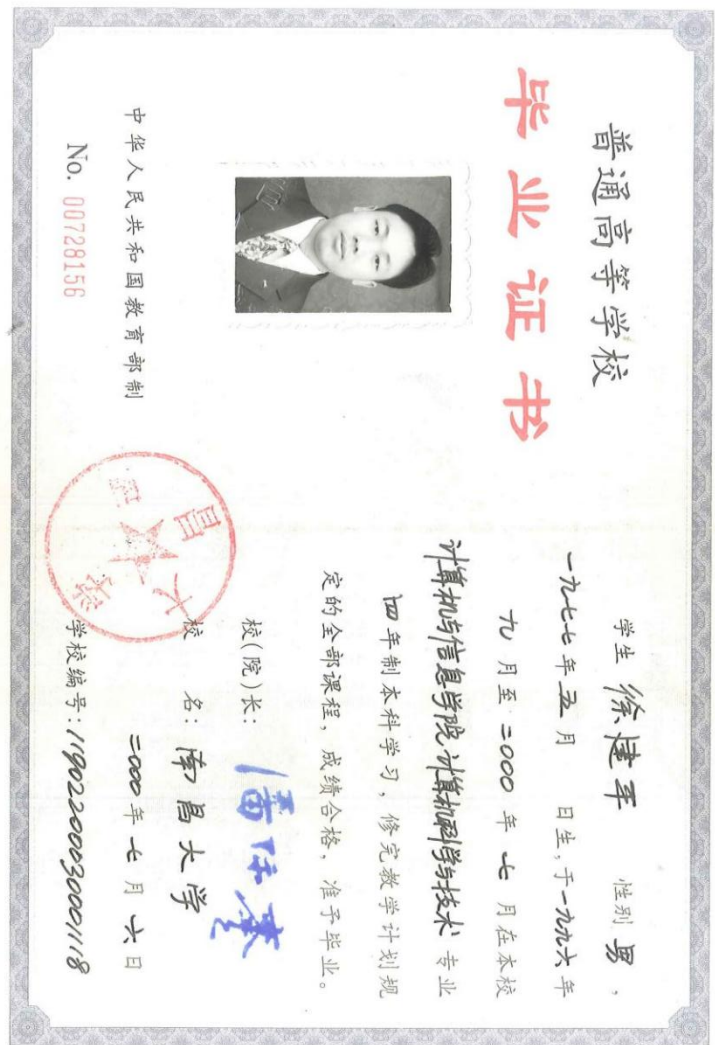 普通高等学校
毕业证书
中华人民共和国教育部制
No. 00728156
学生 徐建军 性别 男,
一九七七年五月 日生,于一九九六年
九月至二000年七月在本校
计算机与信息学院计算机科学与技术专业
四年制本科学习,修完教学计划规
定的全部课程,成绩合格,准予毕业。
校(院)长:
校 名:南昌大学
二000年七月六日
学校编号:11902200030001118
南昌大学